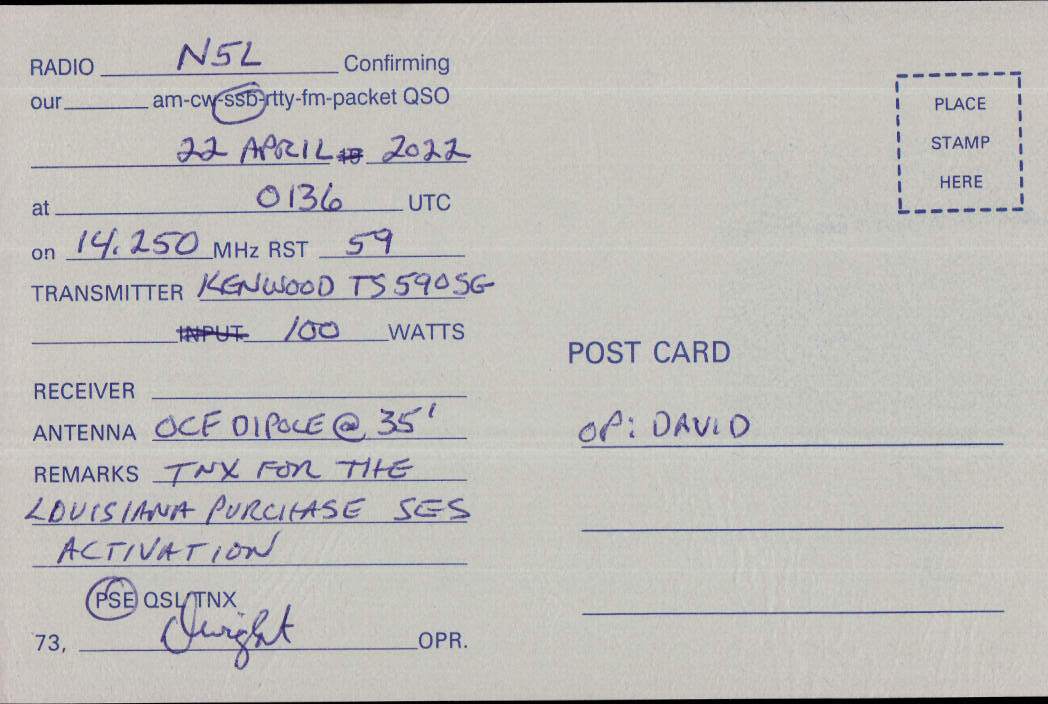 RADIO N5L Confirming
our am-cw-ssb-rtty-fm-packet QSO
22 APRIL 2022
at 0136 UTC
on 14.250 MHz RST 59
TRANSMITTER KENWOOD TS590SG
INPUT 100 WATTS
RECEIVER
ANTENNA OCF DIPOLE @ 35'
REMARKS TNX FOR THE
LOUISIANA PURCHASE SES
ACTIVATION
PSE QSL TNX
73, Dwight OPR.
PLACE
STAMP
HERE
POST CARD
OP: DAVID